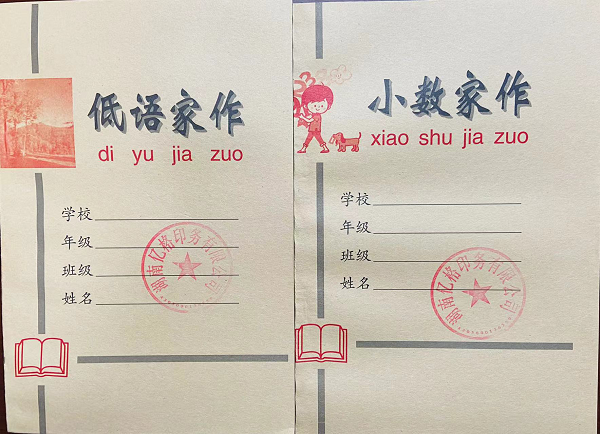 低语家作
di yu jia zuo
学校
年级
班级
姓名
湖南亿格印务有限公司
小数家作
xiao shu jia zuo
学校
年级
班级
姓名
湖南亿格印务有限公司